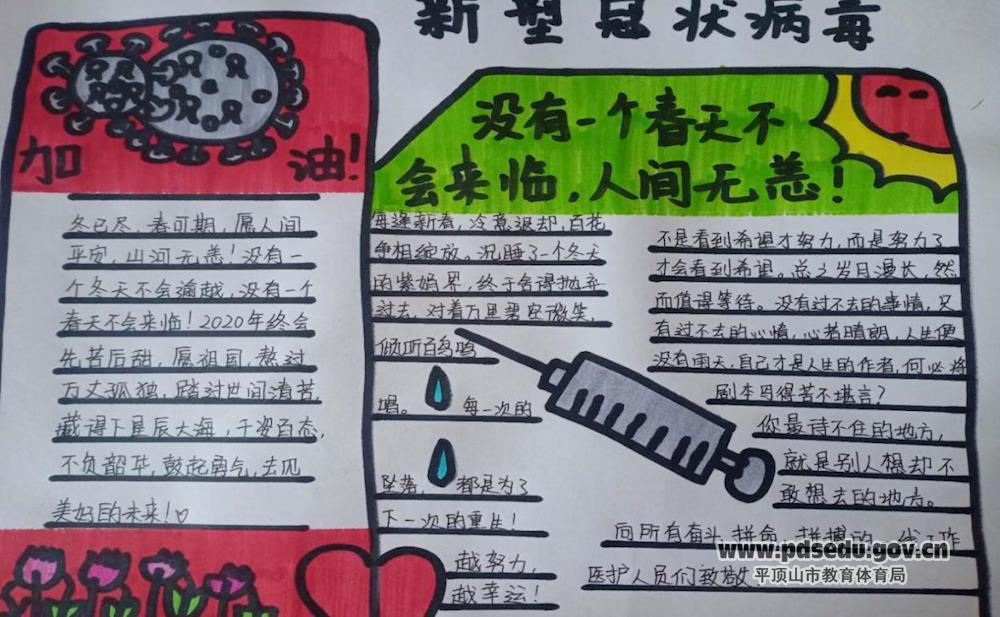 新型冠状病毒
加油!
冬已尽,春可期,愿人间
平安,山河无恙!没有一
个冬天不会逾越,没有一个
春天不会来临!2020年终会
先苦后甜,愿祖国,熬过
万丈孤独,踏过世间清苦,
藏得下星辰大海,千姿百态,
不负韶华,鼓起勇气,去见
美好的未来!♡
没有一个春天不
会来临,人间无恙!
每逢新春,冷意退却,百花
争相绽放。沉睡了一个冬天
的紫嫣,终于舍得抛弃
过去,对着万里碧空微笑,
倾听百鸟鸣
唱。每一次的
坠落,都是为了
下一次的重生!
越努力,
越幸运!
不是看到希望才努力,而是努力了
才会看到希望。岁月漫长,然
而值得等待。没有过不去的事情,又
有过不去的心情,心若晴朗,人生便
没有雨天,自己才是人生的作者,何必将
剧本写得苦不堪言?
你最待不住的地方,
就是别人想却不
敢想去的地方。
向所有奋斗拼命,拼搏工作
医护人员们致敬
www.pdsedu.gov.cn
平顶山市教育体育局